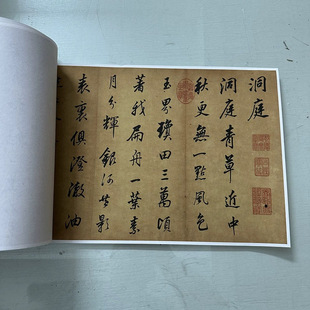 洞庭
洞庭青草近中
秋更無一點風色
玉界瓊田三萬頃
著我扁舟一葉素
月分輝銀河共影
表裏俱澄澈油